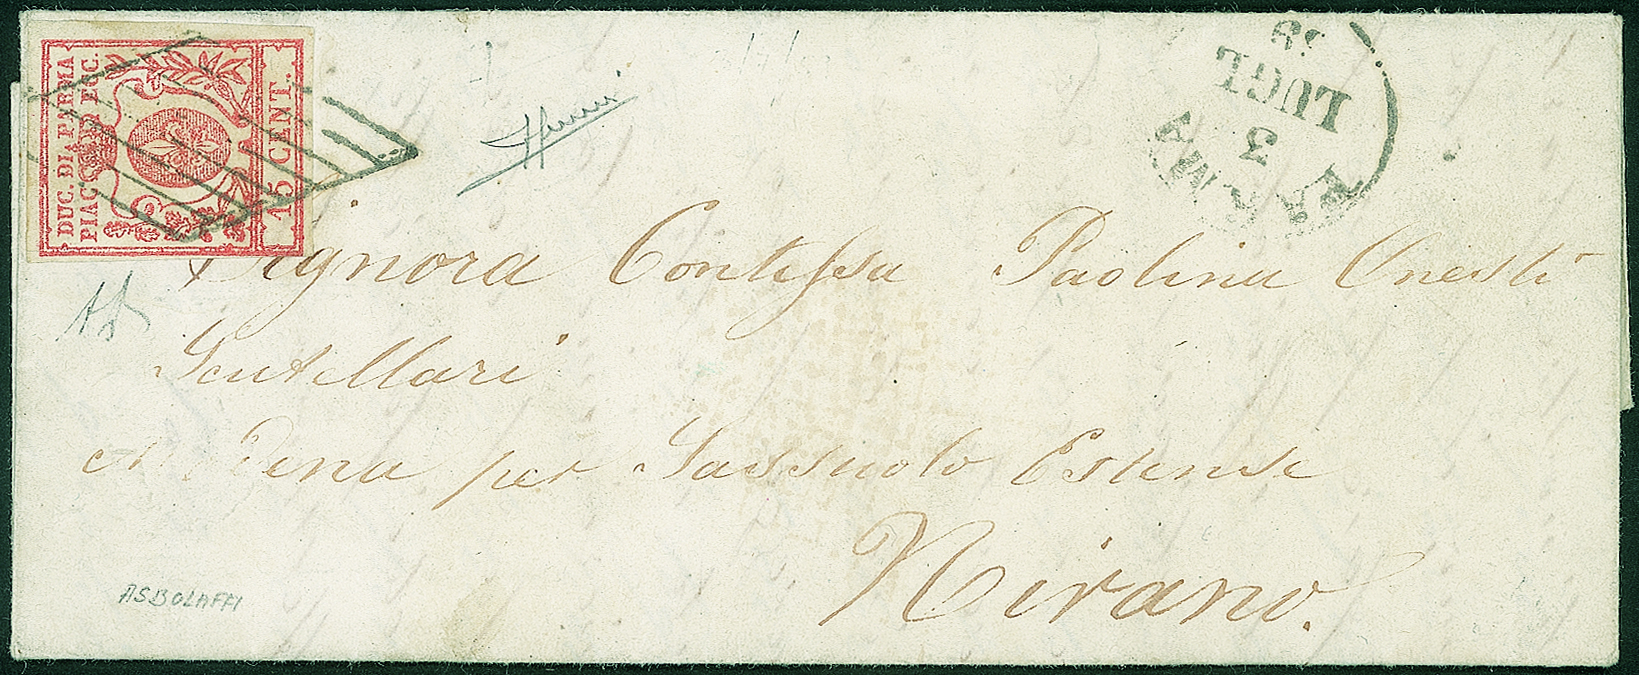 DUC. DI PARMA
PIAC. ECC.
15 CENT.
PARMA
3
LUGL
58
Signora Contessa Paolina Onesti
Scutellari
Modena per Sassuolo Estense
Nirano.
ASBOLAFFI